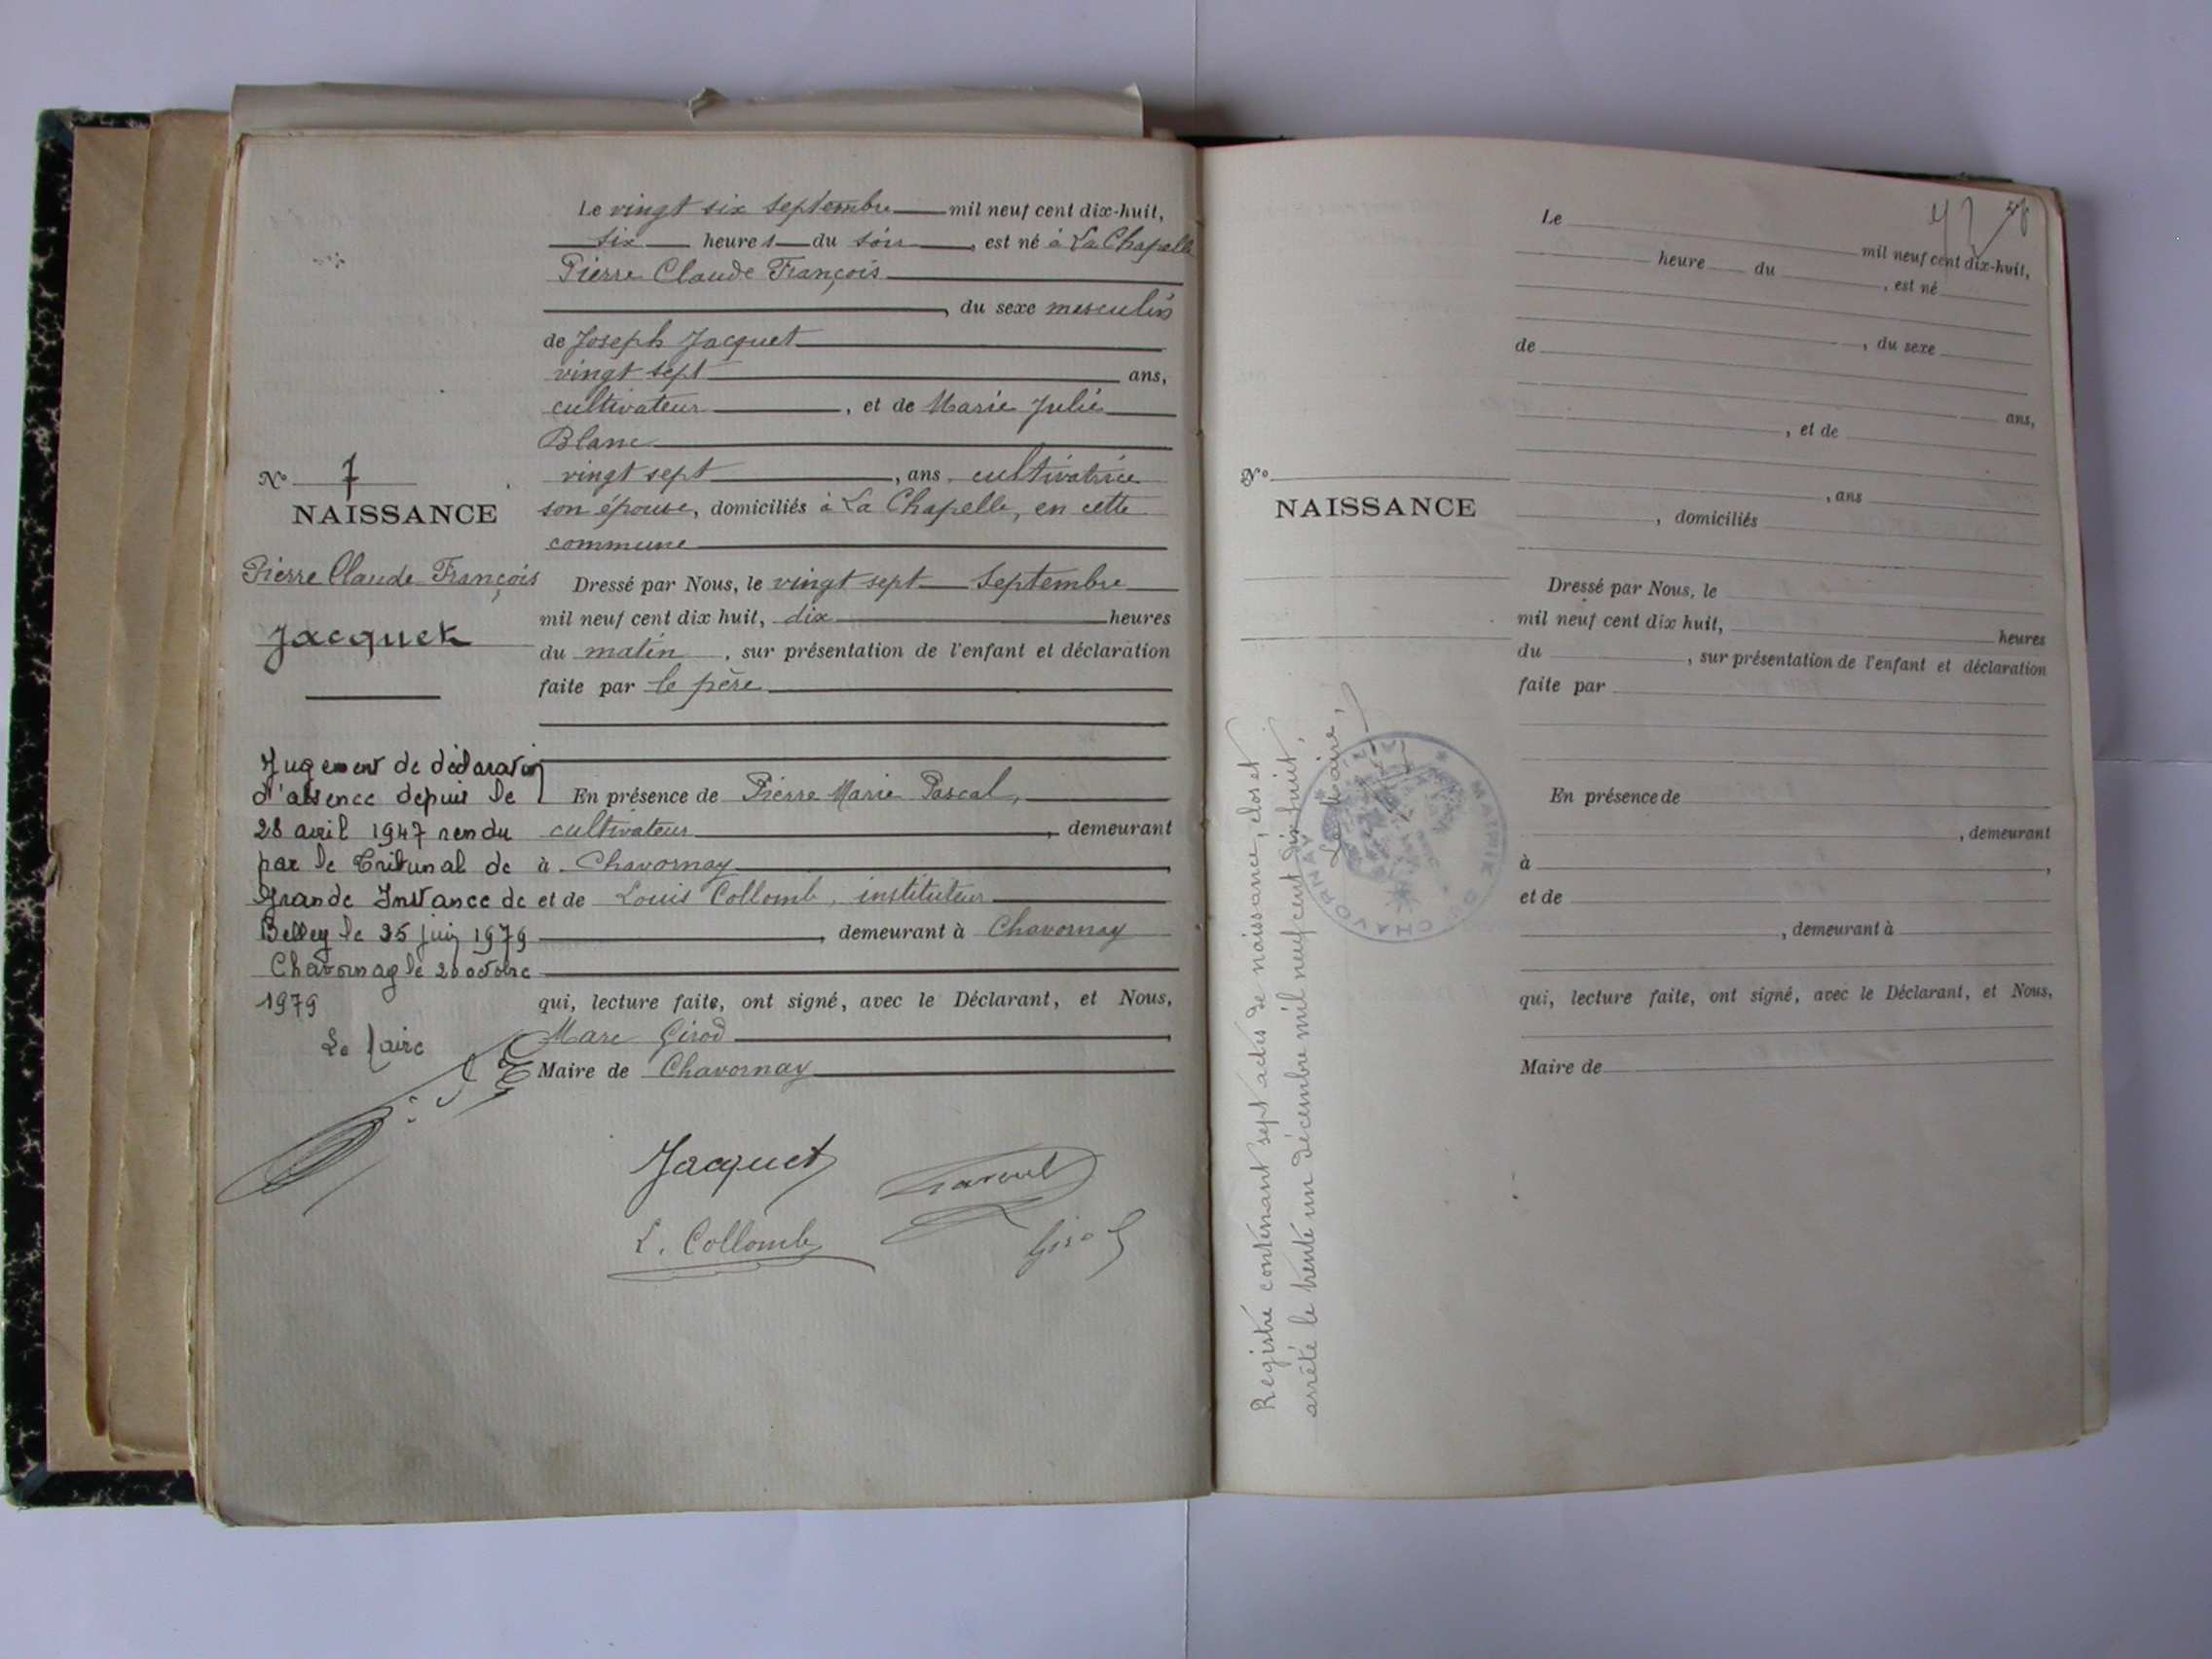 Le vingt six Septembre mil neuf cent dix-huit,
six heures du soir, est né à La Chapelle
Pierre Claude François
, du sexe masculin
de Joseph Jacquet
vingt sept ans,
cultivateur, et de Marie Julie
Blanc
vingt sept, ans cultivatrice
son épouse, domiciliés à La Chapelle, en cette
commune
Dressé par Nous, le vingt sept Septembre
mil neuf cent dix huit, dix heures
du matin, sur présentation de l'enfant et déclaration
faite par le père
En présence de Pierre Marie Pascal,
cultivateur, demeurant
à Chavornay
et de Louis Collomb, instituteur
, demeurant à Chavornay
qui, lecture faite, ont signé, avec le Déclarant, et Nous,
Marc Girod
Maire de Chavornay
Jacquet
L. Collomb
Girod
N° 7
NAISSANCE
Pierre Claude François
Jacquet
Jugement de déclaration
d'absence depuis le
28 avril 1947 rendu
par le Tribunal de
Grande Instance de
Belley le 25 juin 1979
Chavornay le 20 octobre
1979
Le Maire
Le mil neuf cent dix-huit,
heure du , est né
, du sexe
de
ans,
, et de
, ans
, domiciliés
Dressé par Nous, le
mil neuf cent dix huit, heures
du , sur présentation de l'enfant et déclaration
faite par
En présence de
, demeurant
à ,
et de
, demeurant à
qui, lecture faite, ont signé, avec le Déclarant, et Nous,
Maire de
N°
NAISSANCE
Registre contenant sept actes de naissance, clos et
arrêté le trente un décembre mil neuf cent dix huit.
Le Maire,
MAIRIE DE CHAVORNAY